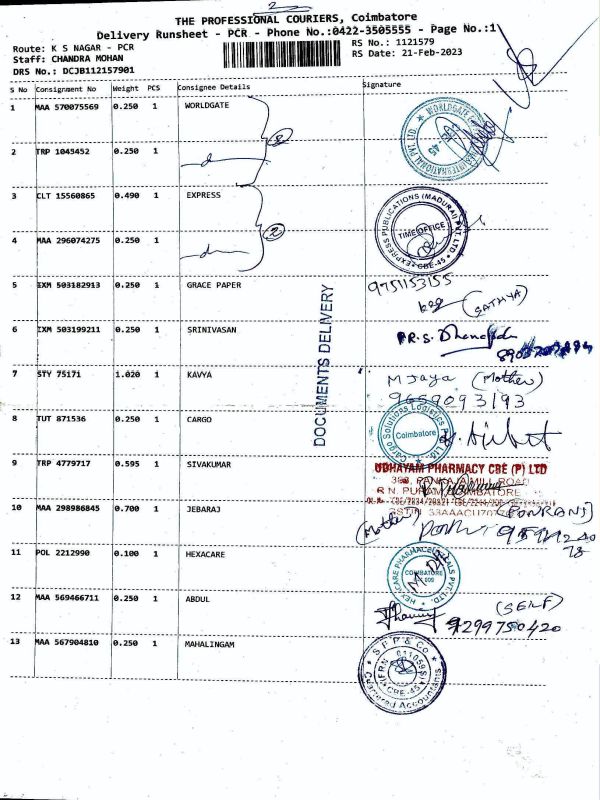 2
THE PROFESSIONAL COURIERS, Coimbatore
Delivery Runsheet - PCR - Phone No.:0422-3505555 - Page No.:1
Route: K S NAGAR - PCR
RS No.: 1121579
Staff: CHANDRA MOHAN
RS Date: 21-Feb-2023
DRS No.: DCJB112157901
S No Consignment No Weight PCS Consignee Details Signature
1 MAA 570075569 0.250 1 WORLDGATE
2 TRP 1045452 0.250 1
3 CLT 15560865 0.490 1 EXPRESS
EXPRESS PUBLICATIONS (MADURAI) PVT. LTD.
TIME OFFICE
CBE-45
4 MAA 296074275 0.250 1
2
5 IXM 503182913 0.250 1 GRACE PAPER 9751153155
(SATHYA)
6 IXM 503199211 0.250 1 SRINIVASAN
DOCUMENTS DELIVERY
7 STY 75171 1.020 1 KAVYA M Jaya (Mother)
9659093193
8 TUT 871536 0.250 1 CARGO
Cargo Solutions Logistics
Coimbatore
9 TRP 4779717 0.595 1 SIVAKUMAR
UDHAYAM PHARMACY CBE (P) LTD
PANKAJA MILL ROAD
COIMBATORE
10 MAA 298986845 0.700 1 JEBARAJ
(Mother)
11 POL 2212990 0.100 1 HEXACARE
HEXACARE PHARMACEUTICALS PVT. LTD.
COIMBATORE
12 MAA 569466711 0.250 1 ABDUL (SELF)
9299750420
13 MAA 567904810 0.250 1 MAHALINGAM
S P P & Co
FRN
CBE-45
Chartered Accountants